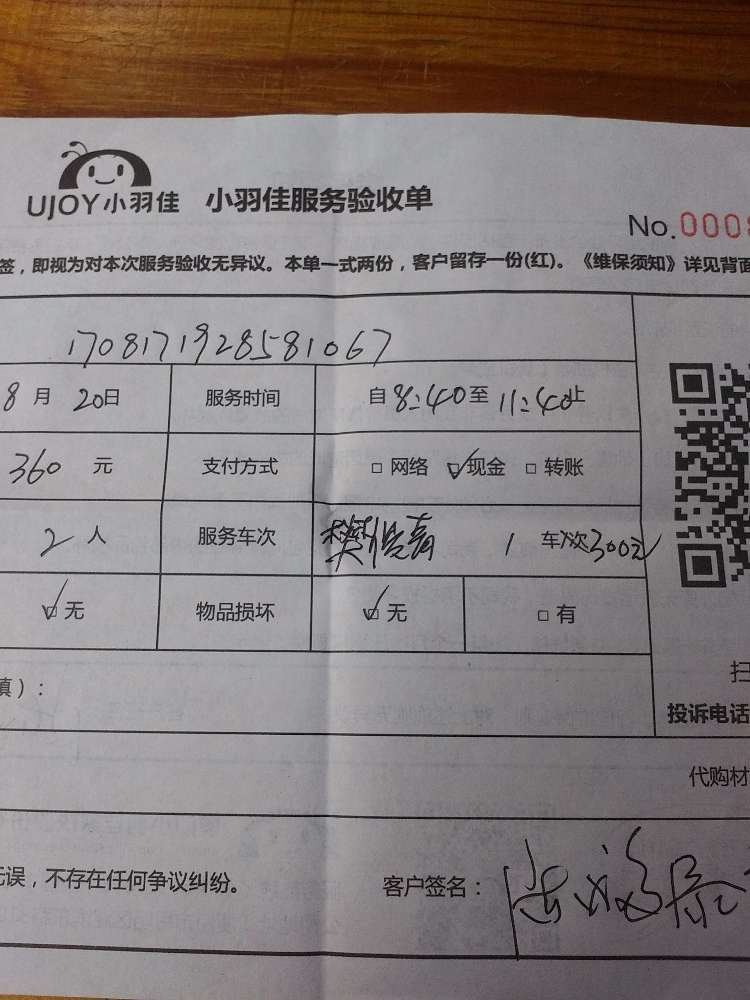 UJOY小羽佳 小羽佳服务验收单
No.0008
签，即视为对本次服务验收无异议。本单一式两份，客户留存一份(红)。《维保须知》详见背面
1708171928581067
8月 20日 服务时间 自8:40至11:40止
360 元 支付方式 □ 网络 ☑现金 □ 转账
2 人 服务车次 1 车次300元
☑无 物品损坏 ☑无 □ 有
填）：
扫
投诉电话
代购材
无误，不存在任何争议纠纷。
客户签名：